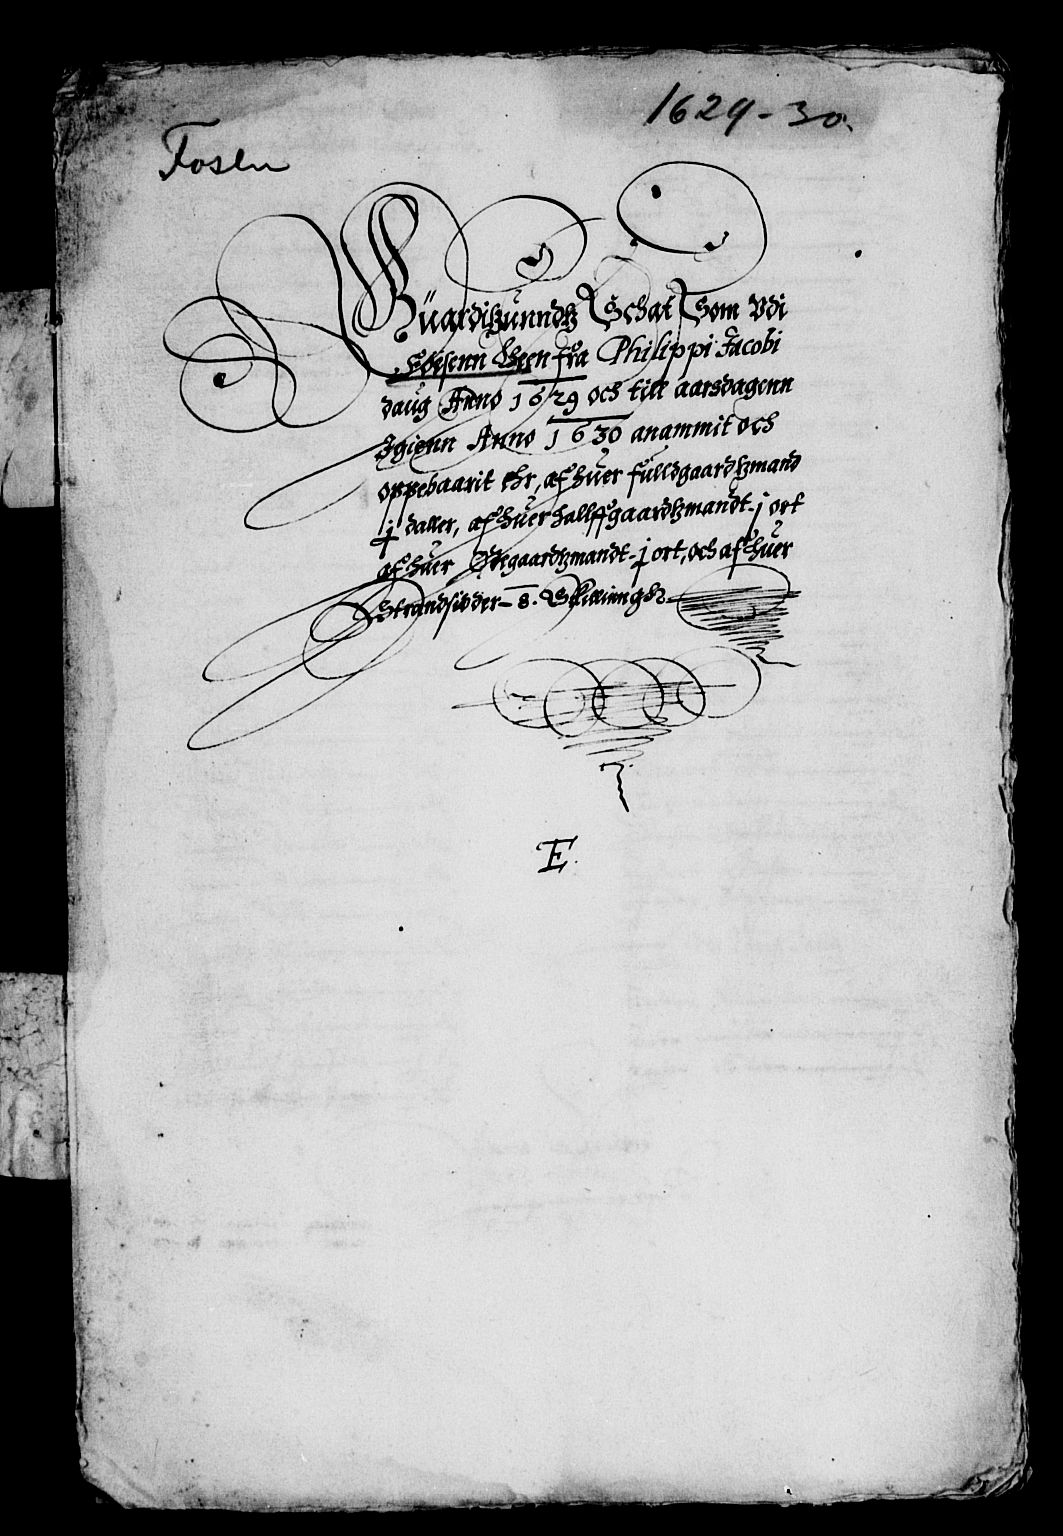 1629-30.
Fosen
Guardizunndtz Schat Som Vdi
Fosenn Leen fra Philippi Jacobi
daug Anno 1629 och till aarsdagenn
Igienn Anno 1630 anammit och
oppebaarit ehr, af huer fulldgaardtzmand
j daller, af huer hallffgaardtzmandt - j ort
af huer Ødegaardtzmandt - j ort, och af huer
Strandsidder - 8. Skillinngh
E.